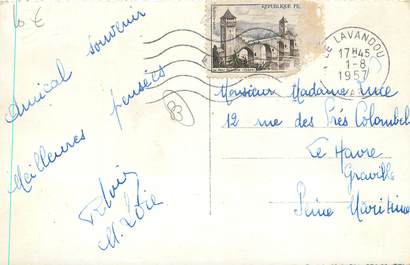 6 €
Amical souvenir
Meilleures pensées
M.
B
REPUBLIQUE FR
LE LAVANDOU
17H45
1-8
1957
VAR
Monsieur Madame
12 rue des Prés Colombel
Le Havre
Graville
Seine Maritime